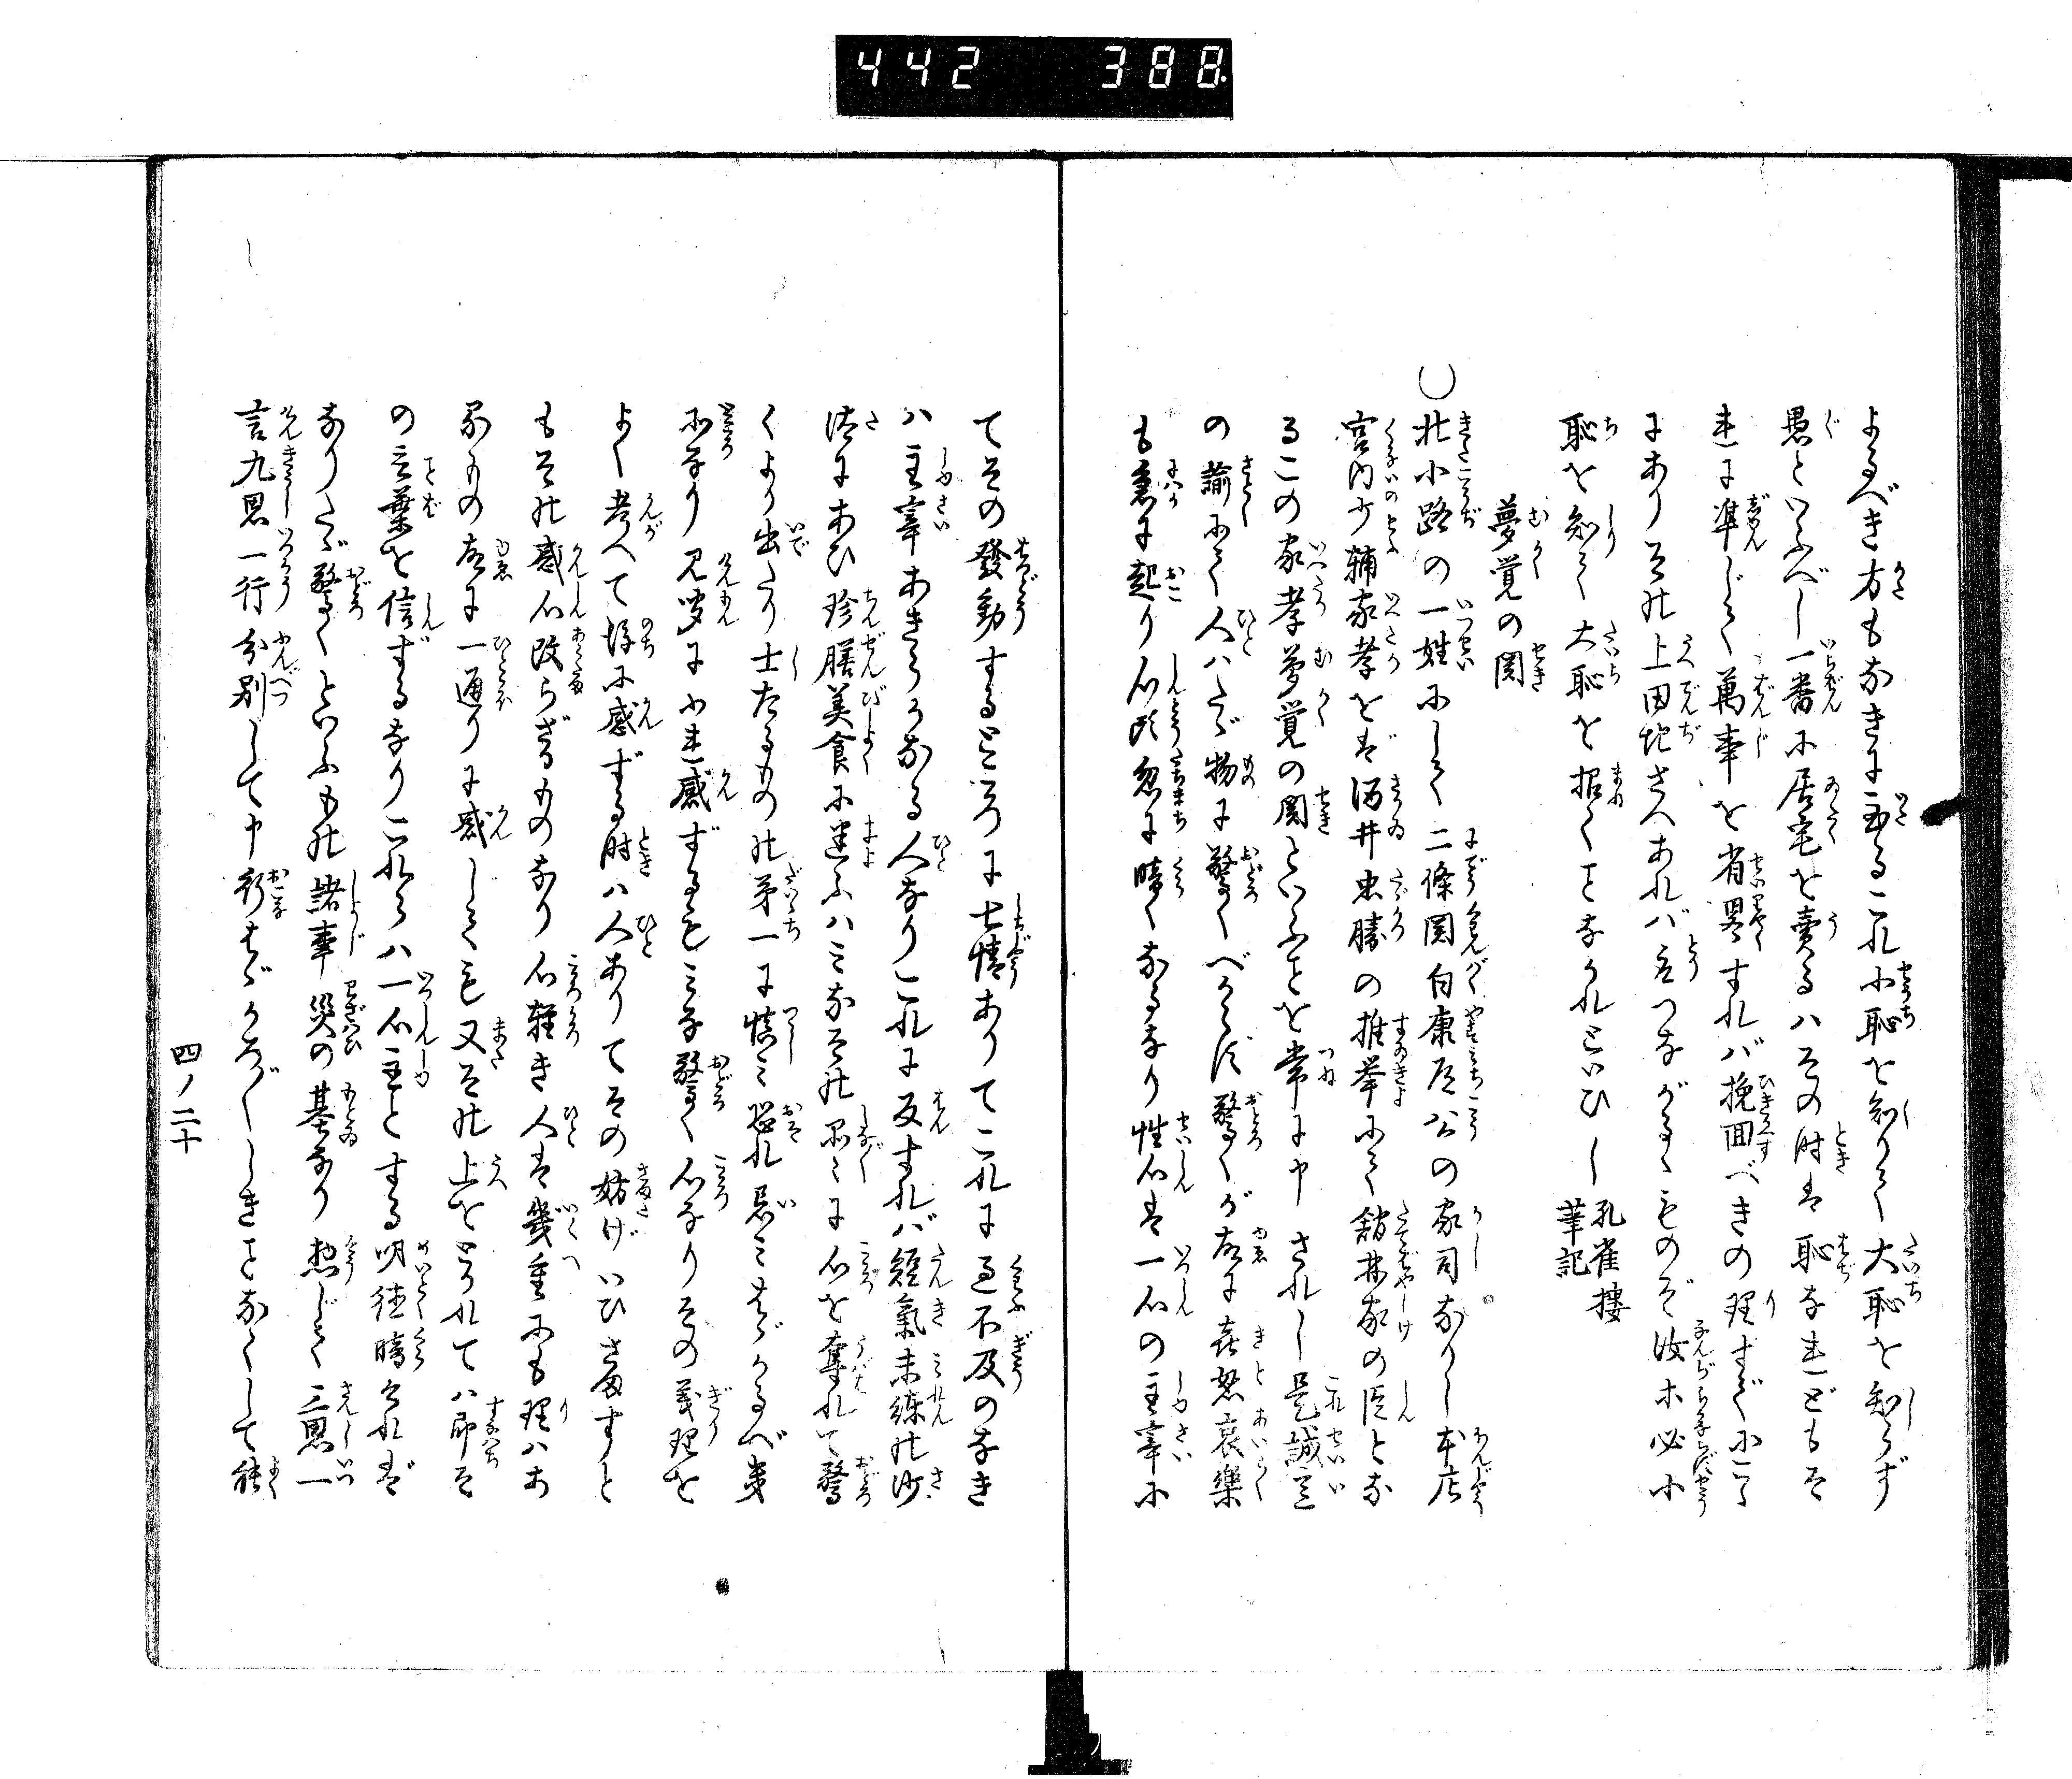 442 388
よるべき方もなきに至るこれ小恥を知りて大恥を知らず
愚といふべし一番に居宅を賣るハその時は恥なれどもそ
れに準じて萬事を省畧すれバ挽回べきの理すでにこゝ
にありその上田地さへあれバ立つながるゝものぞ汝等必小
恥を知て大恥を招くことなかれといひし
孔雀樓
筆記
夢覚の関
○北小路の一姓にして二條関白康道公の家司なりし本店
宮内少輔家孝をば酒井忠勝の推挙にて舘林家の臣とな
るこの家孝夢覚の関といふことを常に申されし是誠意
の諭にて人ハたゞ物に驚くべからず驚くが故に喜怒哀樂
も悪に起り心頭忽に暗くなるなり性心は一心の主宰に
てその發動するところに七情ありてこれに過不及のなき
ハ主宰あきらかなる人なりこれに反すれバ短氣未練の沙
汰にあひ珍膳美食に迷ふハミなその品々に心を奪れて驚
くより出たり士たるものの第一に慎ミ恐れ忌ミはゞかるべき
所なり見聞にふれ感ずるもミな驚く心なりその義理を
よく考へて後に感ずる時ハ人ありてその妨げいひさますと
もその感心改らざるものなり心軽き人は幾重にも理ハあ
るもの故に一通りに感しても又その上をとかれてハ即そ
の言葉を信ずるなりこれらハ一心主とする明徳暗ければ
なりたゞ驚くといふもの諸事災の基なり惣じて三思一
言九思一行分別して申行はゞかろ〴〵しきことなくして能
四ノ二十